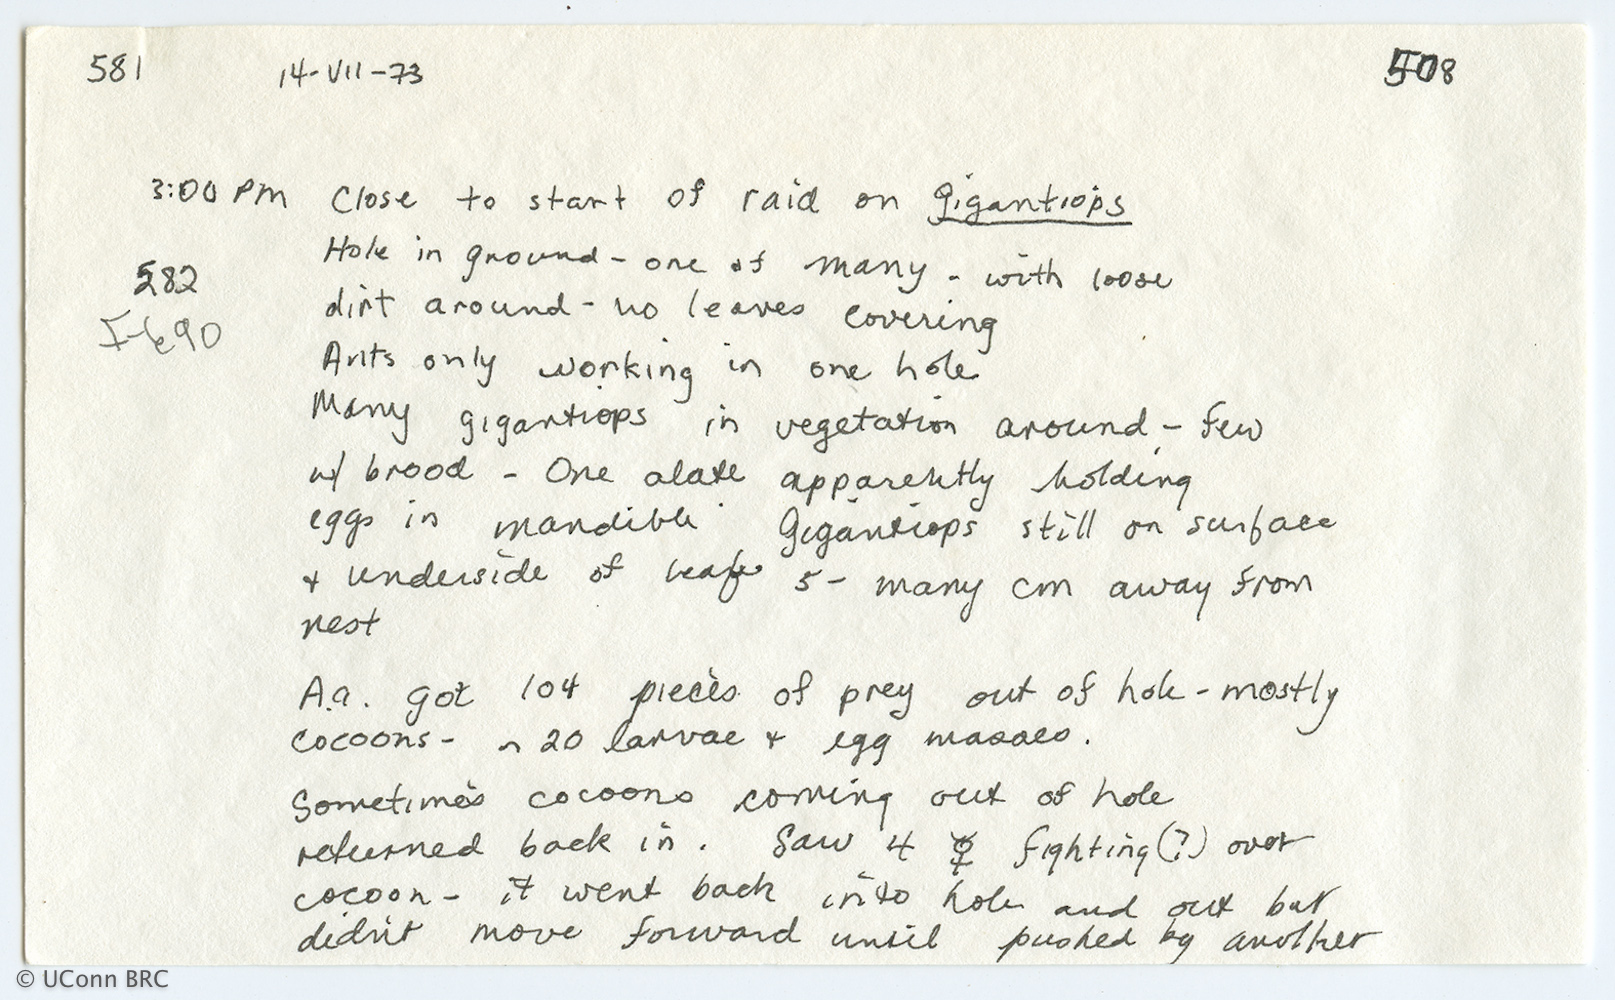 581 14-VII-73 508
3:00 PM Close to start of raid on Gigantiops
Hole in ground - one of many - with loose
582
dirt around - no leaves covering
Ants only working in one hole
Many gigantiops in vegetation around - few
w/ brood - One alate apparently holding
eggs in mandible. Gigantiops still on surface
+ underside of leaf 5 - many cm away from
nest
A.a. got 104 pieces of prey out of hole - mostly
cocoons - ~ 20 larvae + egg masses.
Sometimes cocoons coming out of hole
returned back in. Saw 4 ☿ fighting(?) over
cocoon - it went back into hole and out but
didn't move forward until pushed by another
© UConn BRC